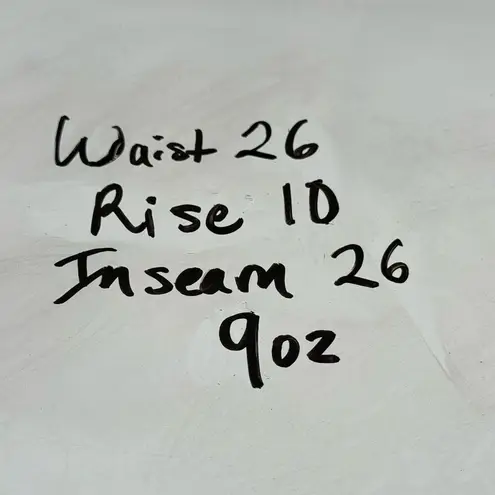 Waist 26
Rise 10
Inseam 26
9oz